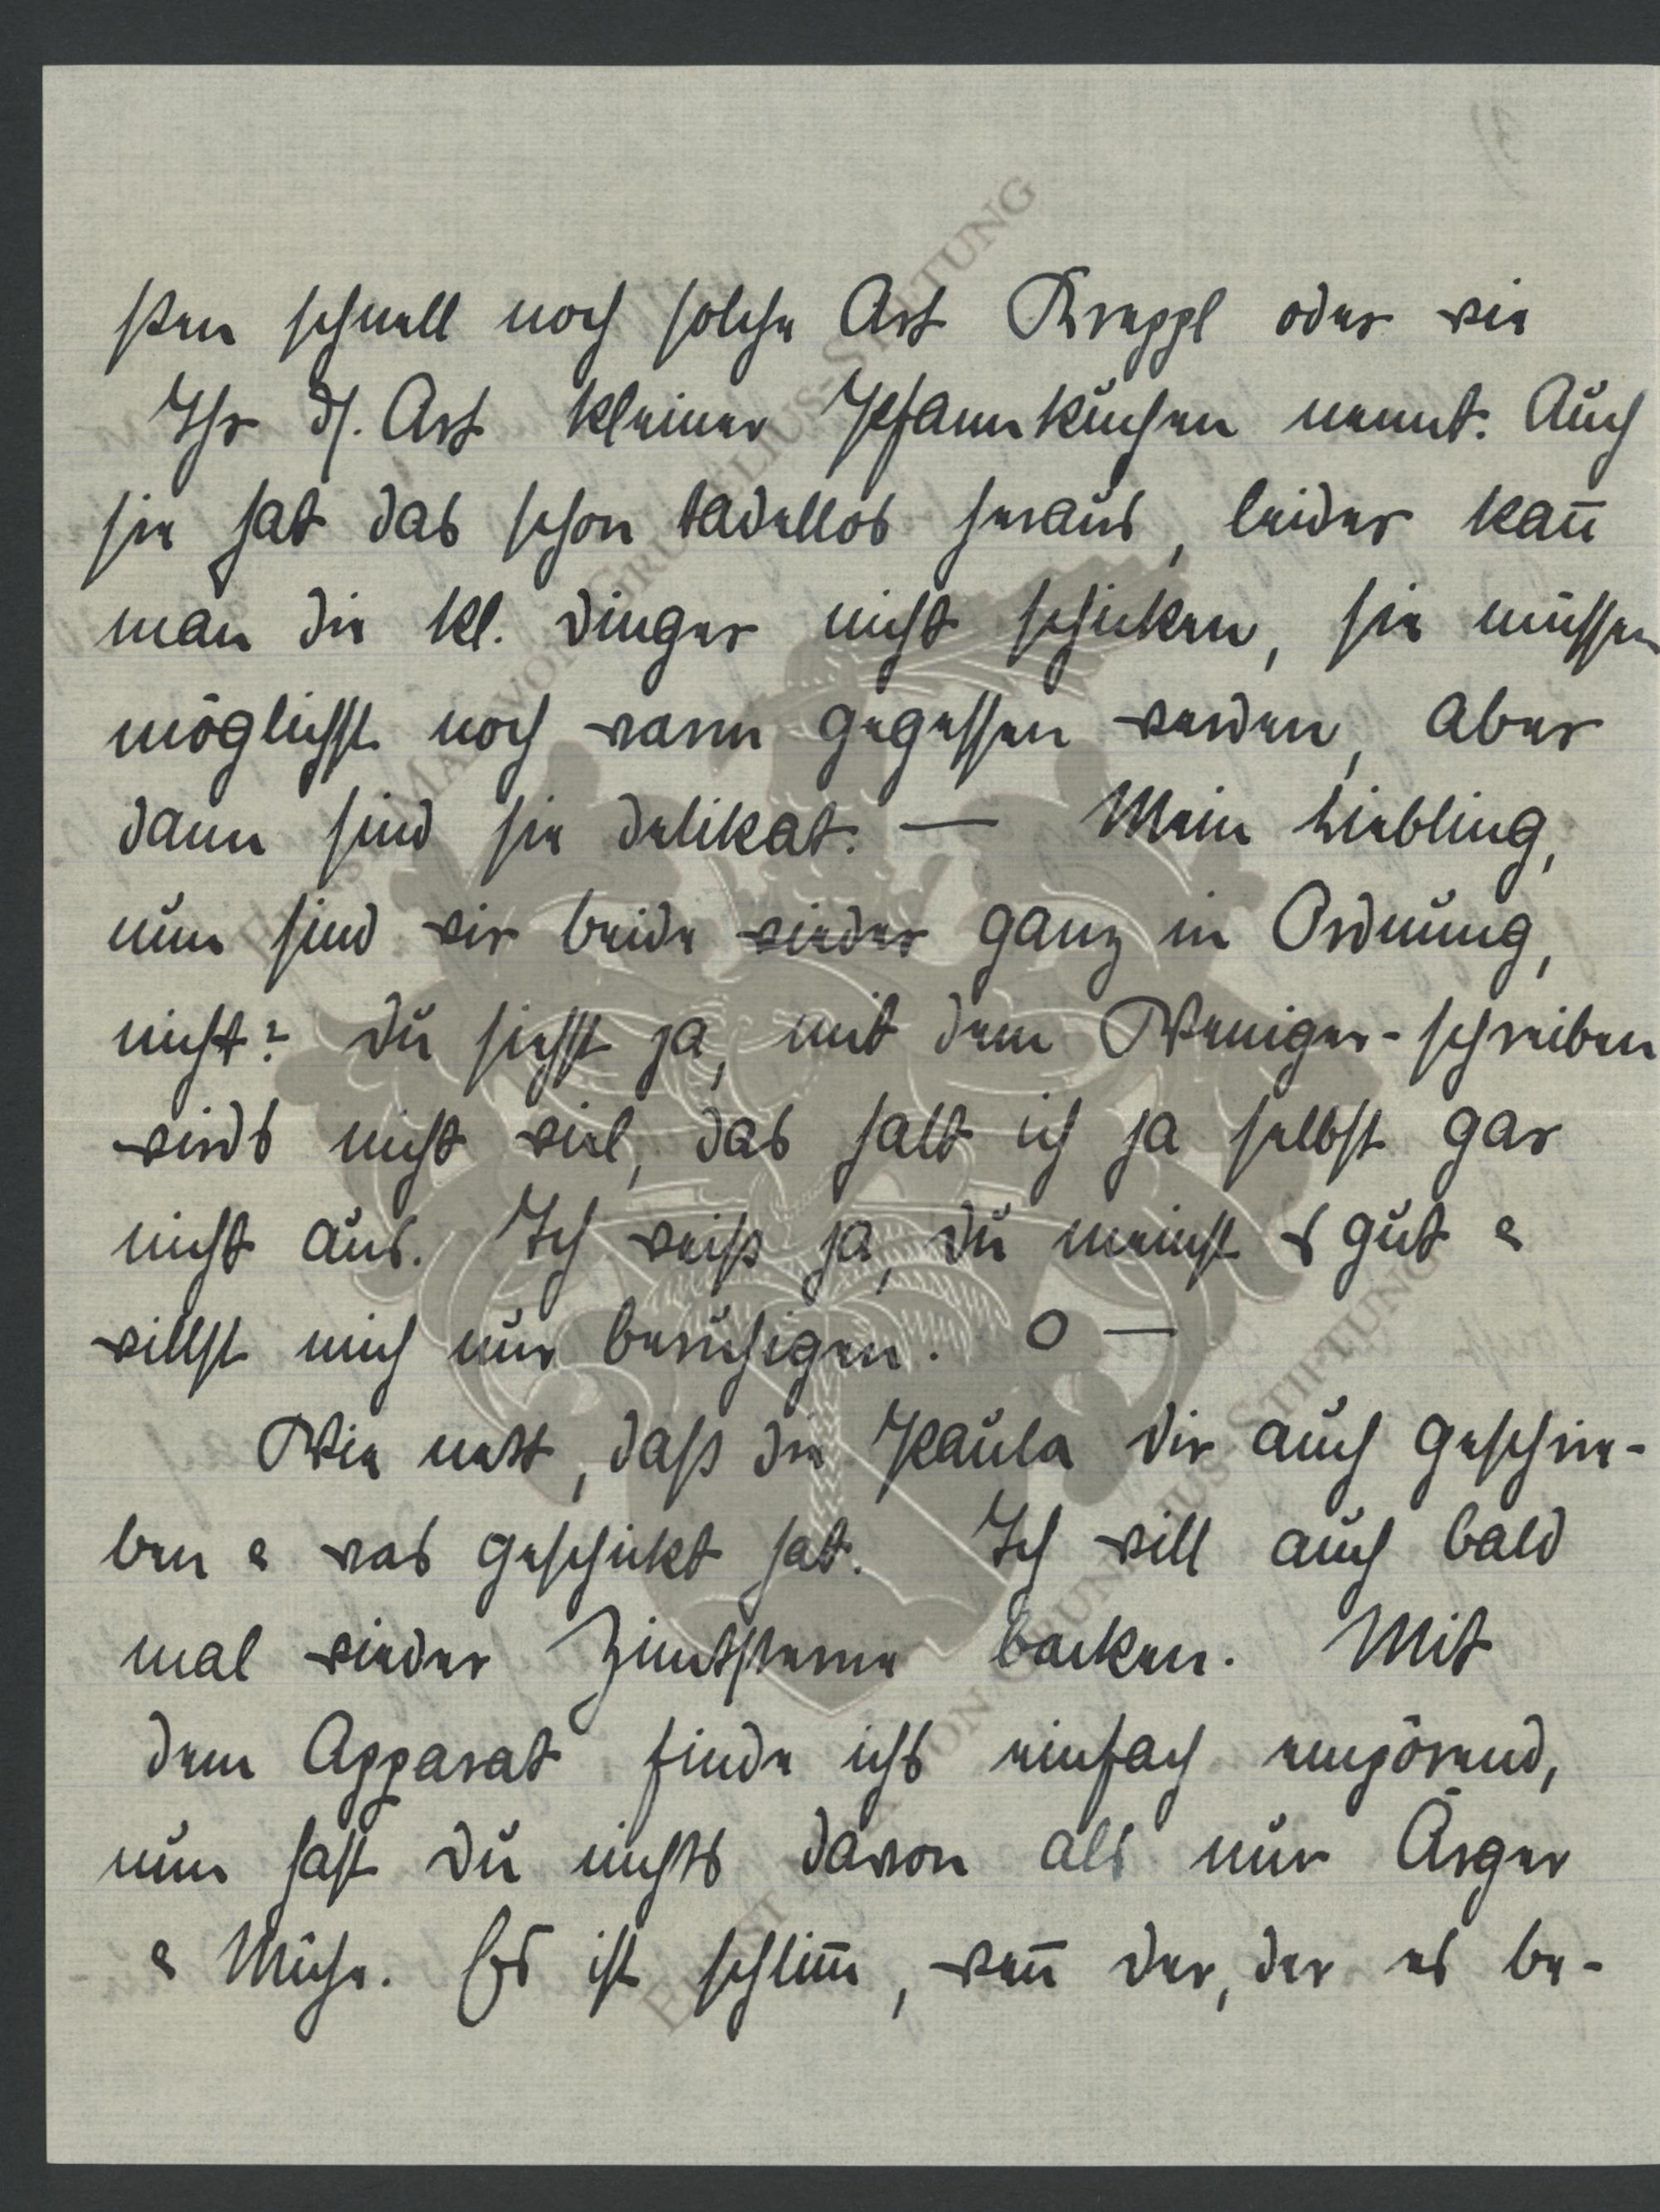 sten schnell noch solche Art Kreppl oder wie
Ihr d. Art kleiner Pfannkuchen nennt. Auch
sie hat das schon tadellos heraus, leider kan̄
man die kl. Dinger nicht schicken, sie müssen
möglichst noch warm gegessen werden, aber
dann sind sie delikat. — Mein Liebling,
nun sind wir beide wieder ganz in Ordnung,
nicht? Du siehst ja, mit dem Weniger-schreiben
wirds nicht viel, das halt ich ja selbst gar
nicht aus. Ich weiß ja, Du meinst es gut &
willst mich nur beruhigen. O —
Wie nett, daß die Paula Dir auch geschrie-
ben & was geschickt hat. Ich will auch bald
mal wieder Zimtsterne backen. Mit
dem Apparat finde ichs einfach empörend,
nun hast Du nichts davon als nur Ärger
& Mühe. Es ist schlim̄, wen̄ der, der es be-
ERNST MAX VON GRUNELIUS-STIFTUNG
ERNST MAX VON GRUNELIUS-STIFTUNG